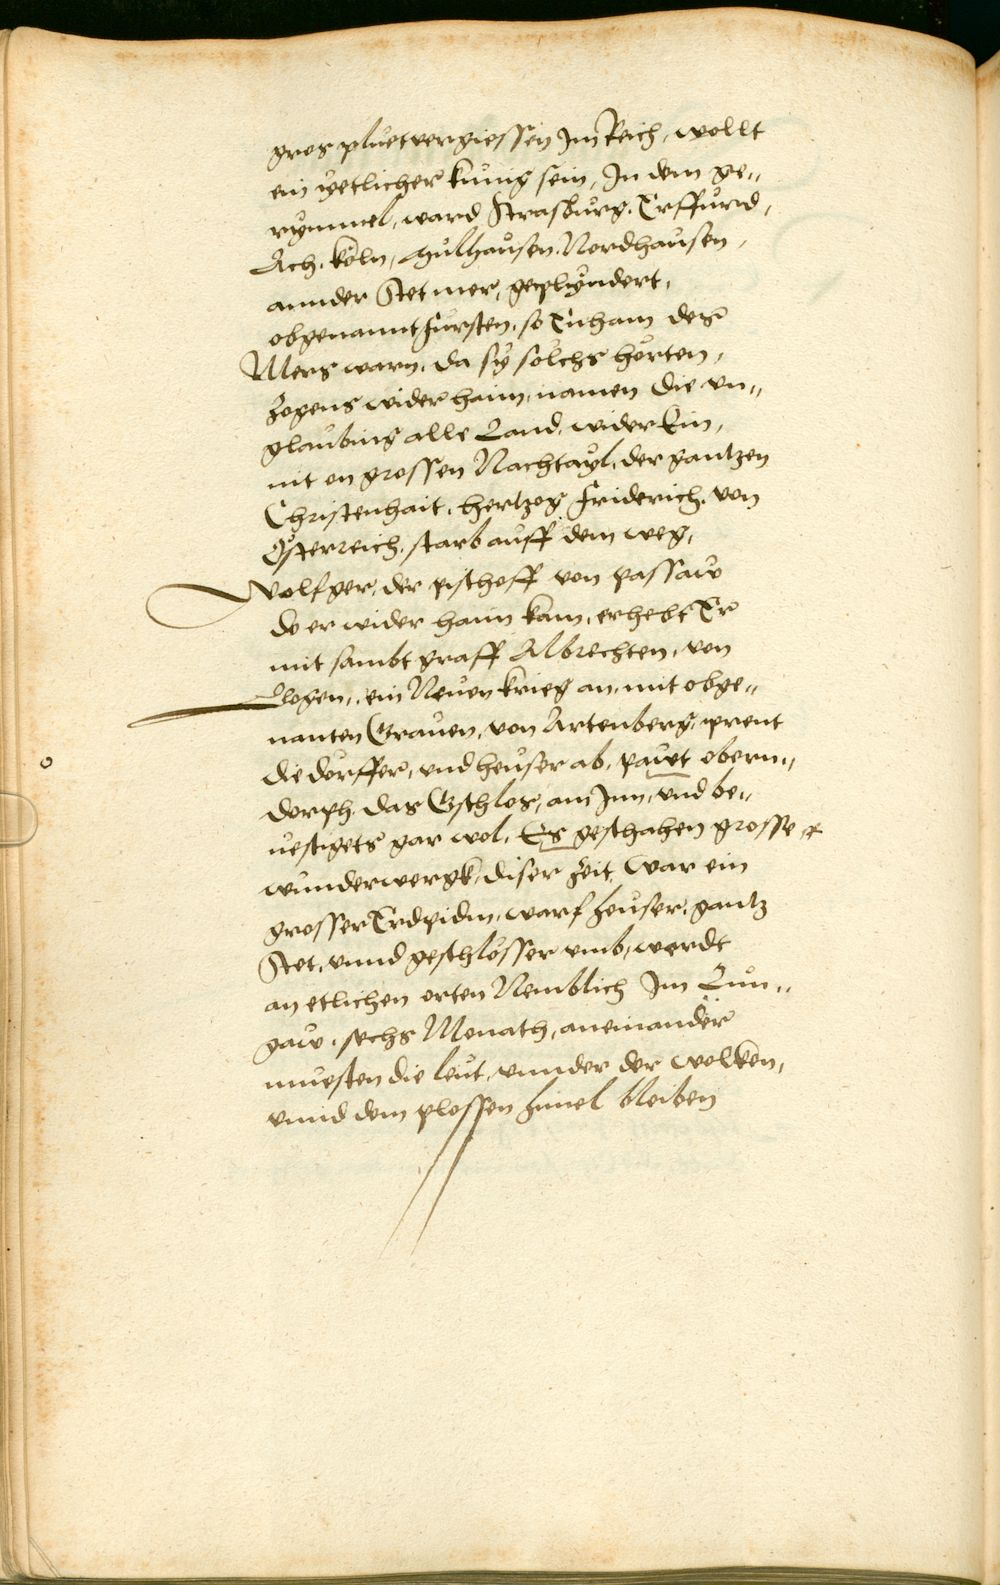 gros pluetvergiessen Im Reich, wollt
ein yetlicher kunig sein, In dem ge„
rymmel, ward Strasburg. Erffurd,
Ach. Köln, Mulhausen. Nordhausen,
annder Stet mer, geplyndert,
obgenannt fursten, so Enham des
Mers warn, da sy solchs horten,
Zogens wider haim, namen die vn„
glaubing alle Land, wider Ein,
mit on grossen Nachtayl, der gantzen
Christenhait. Hertzog Friderich. von
Österreich. starb auff dem weg,
Wolfger, der pischoff von passaw
do er wider haim kam, erhebt Er
mit sambt graff Albrechten, von
Bogen, ein Neuen krieg an, mit obge„
nanten Grauen, von Artenberg, prent
die dorffer, vnd heuser ab, pawt obern„
dorph. das Gschlos, am Inn, vnd be„
uestigets gar wol, Es geschahen grosse
wunderwergk, diser Zeit, war ein
grosser Erdpidm, warf heuser, gantz
Stet, vnnd geschlosser vmb, werdt
an etlichen orten Nemblich Im Lun„
gaw, sechs Monath, aneinander
muesten die leut, vnnder der wolken,
vnnd dem plossen himel bleiben